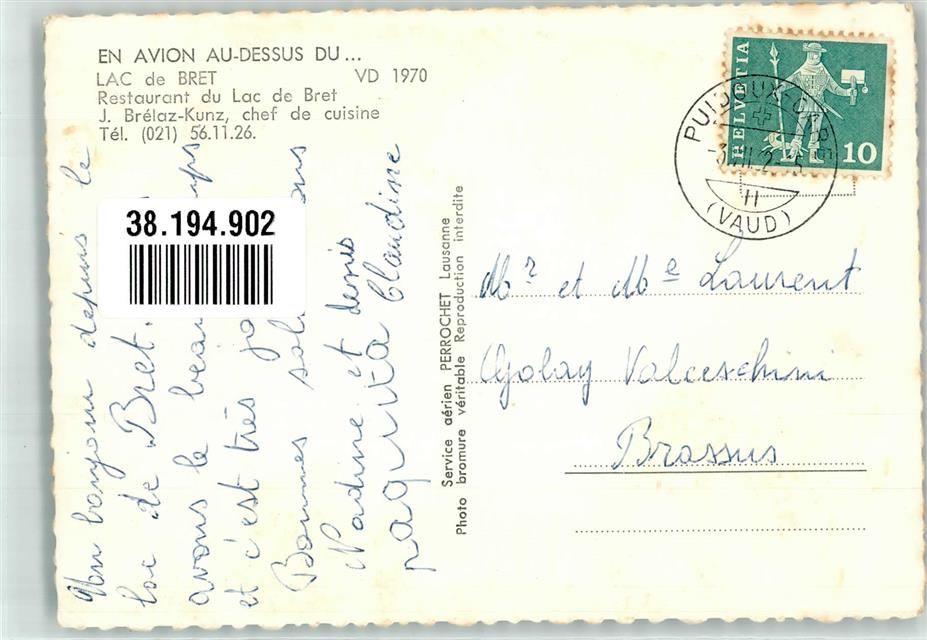 EN AVION AU-DESSUS DU...
LAC de BRET VD 1970
Restaurant du Lac de Bret
J. Brélaz-Kunz, chef de cuisine
Tél. (021) 56.11.26.
38.194.902
Un bonjour depuis le
lac de Bret.
avons le beau
et c'est très
Bonnes
Nadine et denis
paquita Claudine
Service aérien PERROCHET Lausanne
Photo bromure véritable Reproduction interdite
HELVETIA
10
PUIDOUX
(VAUD)
Mr et Me Laurent
Golay
Brassus